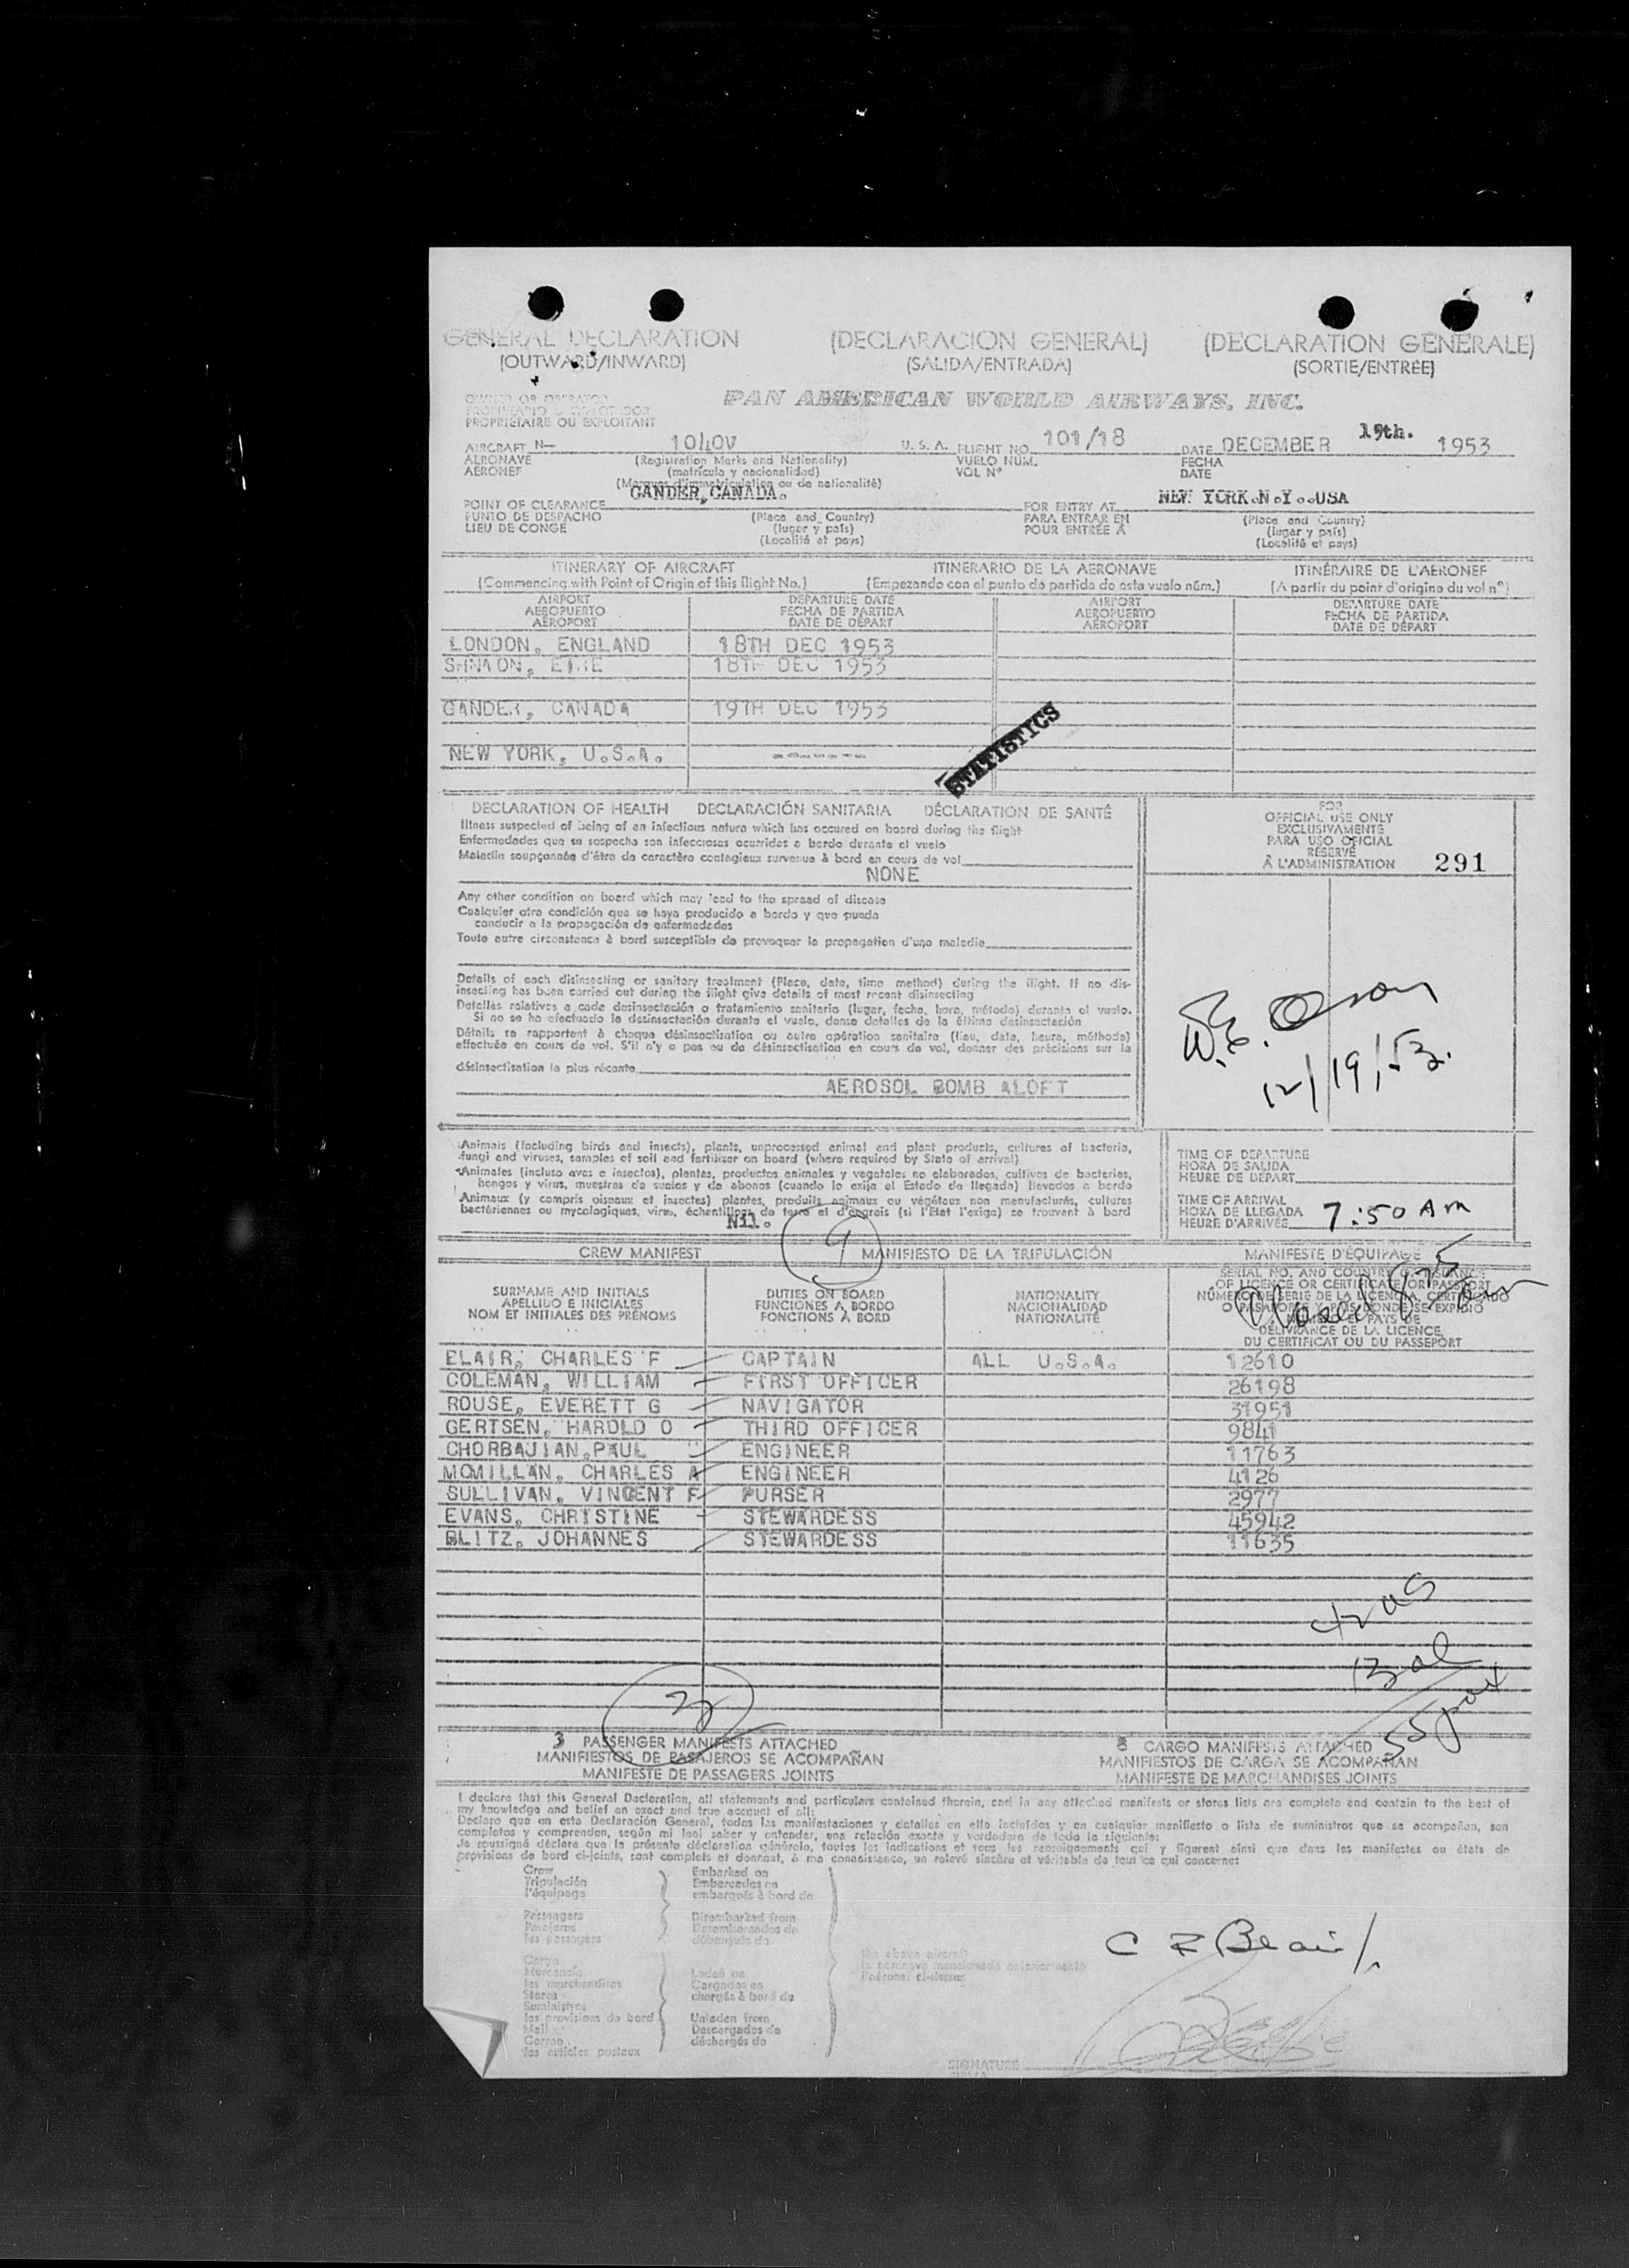 GENERAL DECLARATION (DECLARACION GENERAL) (DECLARATION GENERALE)
(OUTWARD/INWARD) (SALIDA/ENTRADA) (SORTIE/ENTRÉE)
OWNER OR OPERATOR PAN AMERICAN WORLD AIRWAYS, INC.
PROPRIETAIRE OU EXPLOITANT
AIRCRAFT N— 1040V U. S. A. FLIGHT NO. 101/18 DATE DECEMBER 19th. 1953
AERONAVE (Registration Marks and Nationality) VUELO NÚM. FECHA
AERONEF (matrícula y nacionalidad) VOL N° DATE
(Marques d'immatriculation ou de nationalité)
POINT OF CLEARANCE GANDER, CANADA. FOR ENTRY AT NEW YORK.N.Y..USA
PUNTO DE DESPACHO (Place and Country) PARA ENTRAR EN (Place and Country)
LIEU DE CONGÉ (lugar y país) POUR ENTRÉE À (lugar y país)
(Localité et pays) (Localité et pays)
ITINERARY OF AIRCRAFT ITINERARIO DE LA AERONAVE ITINÉRAIRE DE L'AÉRONEF
(Commencing with Point of Origin of this flight No.) (Empezando con el punto de partida de esta vuelo núm.) (A partir du point d'origine du vol n°)
AIRPORT DEPARTURE DATE AIRPORT DEPARTURE DATE
AEROPUERTO FECHA DE PARTIDA AEROPUERTO FECHA DE PARTIDA
AÉROPORT DATE DE DÉPART AÉROPORT DATE DE DÉPART
LONDON, ENGLAND 18TH DEC 1953
18TH DEC 1953
GANDER, CANADA 19TH DEC 1953
NEW YORK, U.S.A. -------
STATISTICS
DECLARATION OF HEALTH DECLARACIÓN SANITARIA DÉCLARATION DE SANTÉ
Illness suspected of being of an infectious nature which has occured on board during the flight
Enfermedades que se sospecha son infecciosas ocurridas a bordo durante el vuelo
Maladie soupçonnée d'être de caractère contagieux survenue à bord en cours de vol
NONE
FOR
OFFICIAL USE ONLY
EXCLUSIVAMENTE
PARA USO OFICIAL
RÉSERVÉ
À L'ADMINISTRATION 291
Any other condition on board which may lead to the spread of disease
Cualquier otra condición que se haya producido a bordo y que pueda
conducir a la propagación de enfermedades
Toute autre circonstance à bord susceptible de provoquer la propagation d'une maladie
Details of each disinsecting or sanitary treatment (Place, date, time method) during the flight. If no dis-
insecting has been carried out during the flight give details of most recent disinsecting
Detalles relativos a cada desinsectación o tratamiento sanitario (lugar, fecha, hora, método) durante el vuelo.
Si no se ha efectuado la desinsectación durante el vuelo, dense detalles de la última desinsectación
Détails se rapportant à chaque désinsectisation ou autre opération sanitaire (lieu, date, heure, méthode)
effectuée en cours de vol. S'il n'y a pas eu de désinsectisation en cours de vol, donner des précisions sur la
désinsectisation la plus récente
AEROSOL BOMB ALOFT
12/19/53.
Animals (including birds and insects), plants, unprocessed animal and plant products, cultures of bacteria,
fungi and viruses, samples of soil and fertiliser on board (where required by State of arrival)
Animales (incluso aves e insectos), plantas, productos animales y vegetales no elaborados, cultivos de bacterias,
hongos y virus, muestras de suelos y de abonos (cuando lo exija el Estado de llegada) llevados a bordo
Animaux (y compris oiseaux et insectes) plantes, produits animaux ou végétaux non manufacturés, cultures
bactériennes ou mycologiques, virus, échantillons de terre et d'engrais (si l'Etat l'exige) se trouvant à bord
Nil.
TIME OF DEPARTURE
HORA DE SALIDA
HEURE DE DÉPART
TIME OF ARRIVAL
HORA DE LLEGADA 7:50 Am
HEURE D'ARRIVÉE
9
CREW MANIFEST MANIFIESTO DE LA TRIPULACIÓN MANIFESTE D'ÉQUIPAGE
SURNAME AND INITIALS DUTIES ON BOARD NATIONALITY SERIAL NO. AND COUNTRY OF ISSUANCE
APELLIDO E INICIALES FUNCIONES A BORDO NACIONALIDAD OF LICENCE OR CERTIFICATE OR PASSPORT
NOM ET INITIALES DES PRÉNOMS FONCTIONS À BORD NATIONALITÉ NÚMERO DE SERIE DE LA LICENCIA, CERTIFICADO
O PASAPORTE Y PAÍS DONDE SE EXPIDIÓ
PAYS DE
DÉLIVRANCE DE LA LICENCE,
DU CERTIFICAT OU DU PASSEPORT
BLAIR, CHARLES F CAPTAIN ALL U.S.A. 12610
COLEMAN, WILLIAM FIRST OFFICER 26198
ROUSE, EVERETT G NAVIGATOR 31951
GERTSEN, HAROLD O THIRD OFFICER 9841
CHORBAJIAN,PAUL ENGINEER 11763
MCMILLAN, CHARLES A ENGINEER 4126
SULLIVAN, VINCENT F PURSER 2977
EVANS, CHRISTINE STEWARDESS 45942
BLITZ, JOHANNES STEWARDESS 11635
42 US
13 al
55 pax
3 PASSENGER MANIFESTS ATTACHED CARGO MANIFESTS ATTACHED
MANIFIESTOS DE PASAJEROS SE ACOMPAÑAN MANIFIESTOS DE CARGA SE ACOMPAÑAN
MANIFESTE DE PASSAGERS JOINTS MANIFESTE DE MARCHANDISES JOINTS
I declare that this General Declaration, all statements and particulars contained therein, and in any attached manifests or stores lists are complete and contain to the best of
my knowledge and belief an exact and true account of all:
Declaro que en esta Declaración General, todas las manifestaciones y detalles en ella incluídos y en cualquier manifiesto o lista de suministros que se acompañan, son
completos y comprenden, según mi leal saber y entender, una relación exacta y verdadera de todo lo siguiente:
Je soussigné déclare que la présente déclaration générale, toutes les indications et tous les renseignements qui y figurent ainsi que dans les manifestes ou états de
provisions de bord ci-joints, sont complets et donnent, à ma connaissance, un relevé sincère et véritable de tout ce qui concerne:
Crew Embarked on
Tripulación Embarcados en
l'équipage embarqués à bord de
Passengers Disembarked from
Pasajeros Desembarcados de
les passagers débarqués de
Cargo
Mercancía Laden on
les marchandises Cargados en
Stores chargés à bord de
Suministros
les provisions de bord Unladen from
Mail Descargados de
Correo déchargés de
les articles postaux
the above aircraft
la aeronave mencionada anteriormente
l'aéronef ci-dessus
C F Blair/.
SIGNATURE